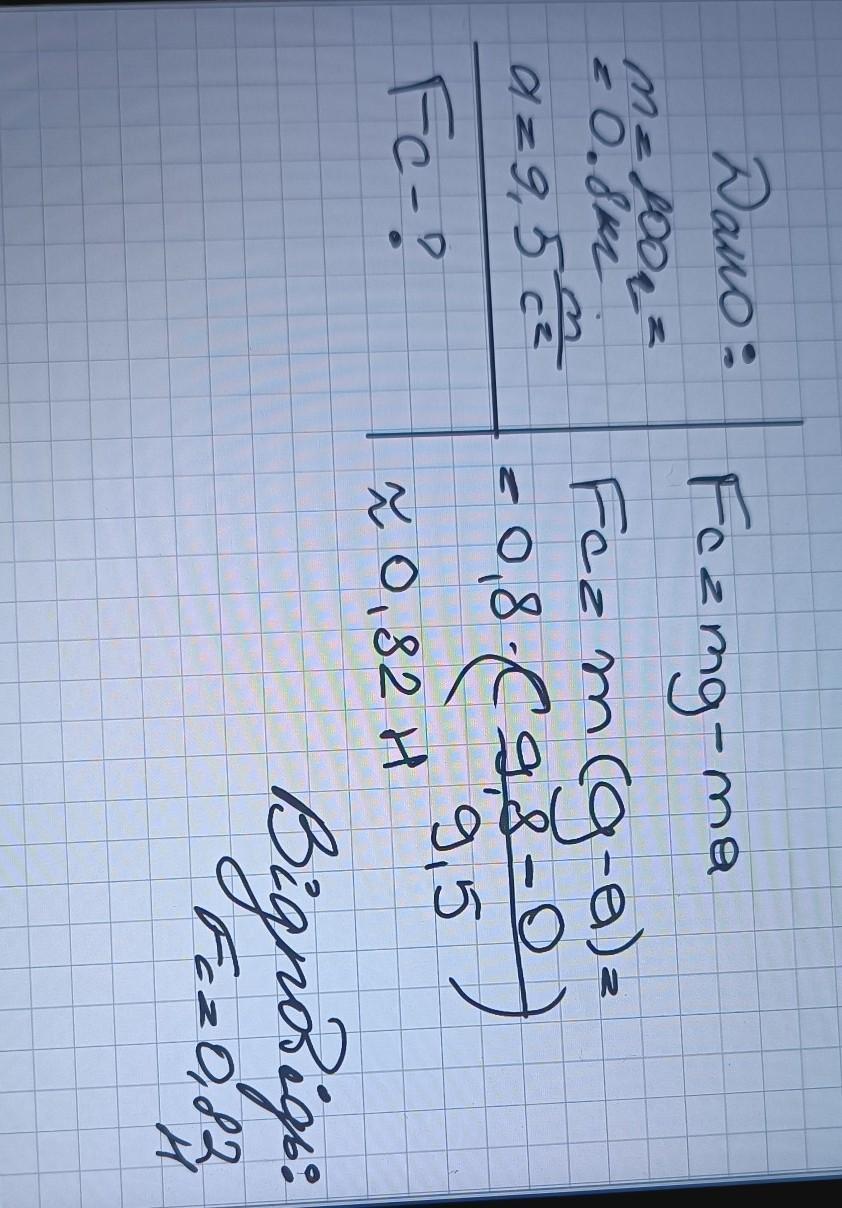 Дано:
m = 800г =
= 0.8кг
a = 9,5 m/c²
Fc - ?
Fc = mg - ma
Fc = m(g - a) =
= 0,8 · (9,8 - 0 / 9,5)
≈ 0,82 H
Відповідь:
Fc = 0,82
H